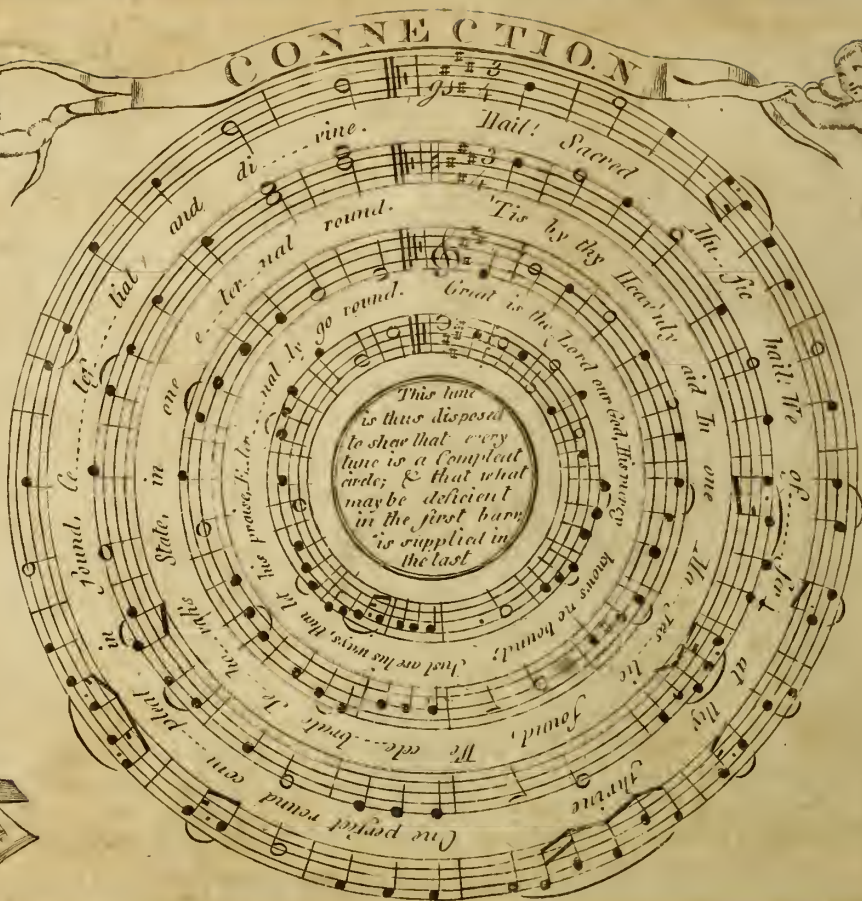 CONNECTION
Hail! Sacred Mu..sic hail! We of......fer at thy shrine One perfect round com...pleat in sound, Ce......les......tial, and di......vine.
'Tis by thy Heav'nly aid In one Ma...jes...tic sound, We cele...brate Je...ho...vah's State, in one e...ter...nal round.
Great is the Lord our God, His mercy knows no bound; Just are his ways, then let his praise, E..ter......nal ly go round.
This tune
is thus disposed
to shew that every
tune is a Compleat
circle; & that what
may be deficient
in the first barr,
is supplied in
the last